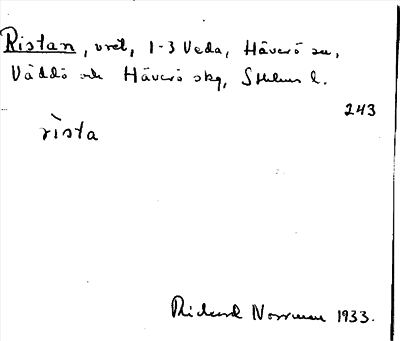 Ristan, vret, 1-3 Veda, Häverö sn,
Väddö och Häverö skg, Sthlms l.
243
rista
Rickard Norrman 1933.